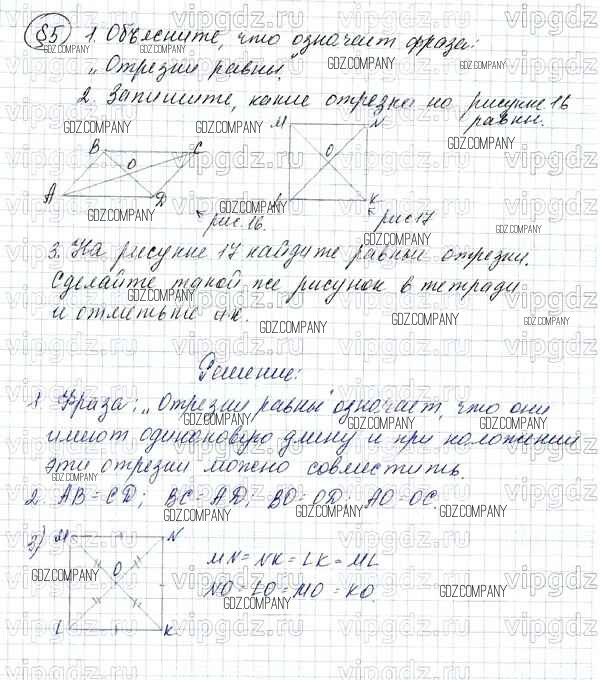 §5 1. Объясните, что означает фраза:
„Отрезки равны."
2. Запишите, какие отрезки на рисунке 16
равны.
M N
B C
O O
A D
L K
рис. 16. рис 17
3. На рисунке 17 найдите равные отрезки.
Сделайте такой же рисунок в тетради
и отметьте их.
Решение:
1 Фраза: „Отрезки равны" означает, что они
имеют одинаковую длину и при наложении
эти отрезки можно совместить.
2. AB = CD; BC = AD; BO = OD. AO = OC.
3) M N
O
MN = NK = LK = ML
NO = LO = MO = KO.
L K
GDZ.COMPANY
vipgdz.ru